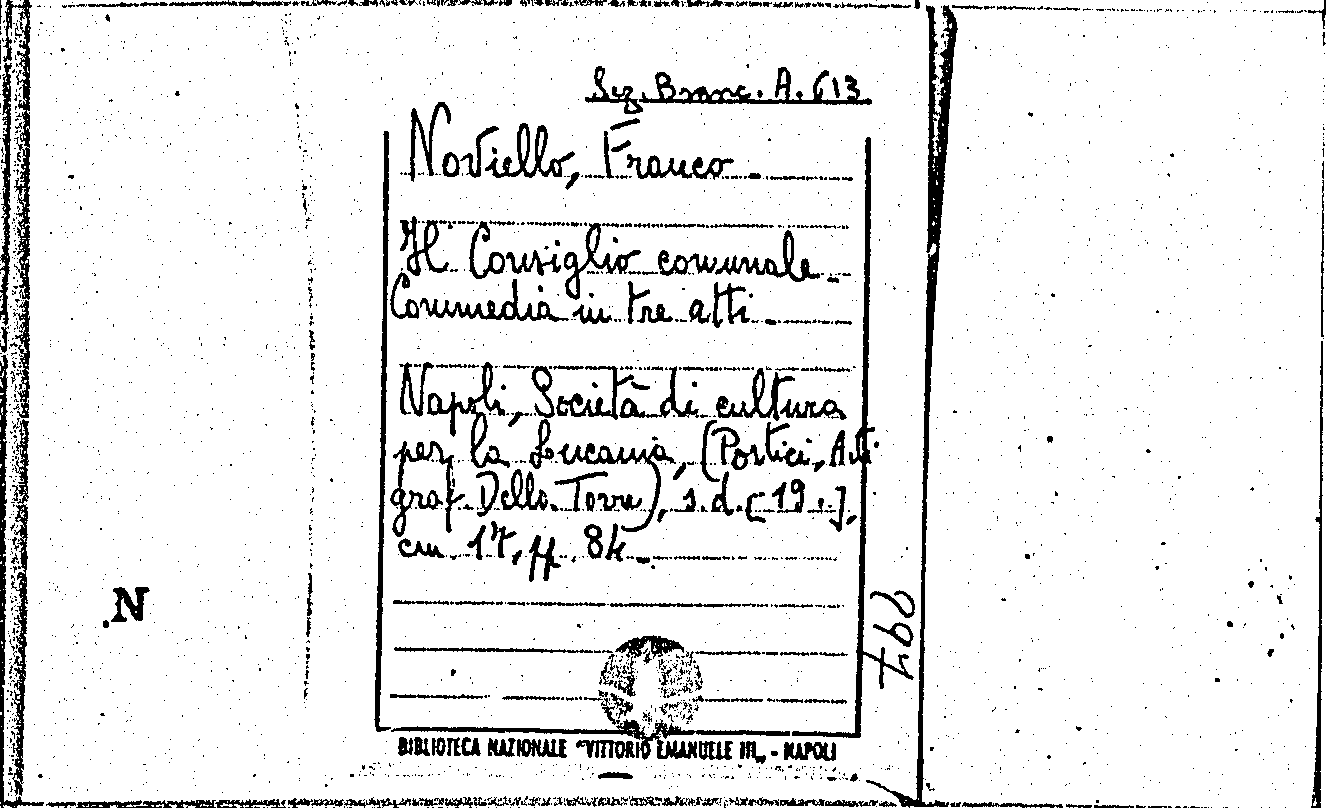 Sez. Branc. A. 613
Noviello, Franco -
Il Consiglio comunale -
Commedia in tre atti -
Napoli, Società di cultura
per la Lucania, (Portici, Arti
graf. Della Torre), s.d. [19..],
cm 17, pp. 84 -
N
997
BIBLIOTECA NAZIONALE "VITTORIO EMANUELE III„ - NAPOLI